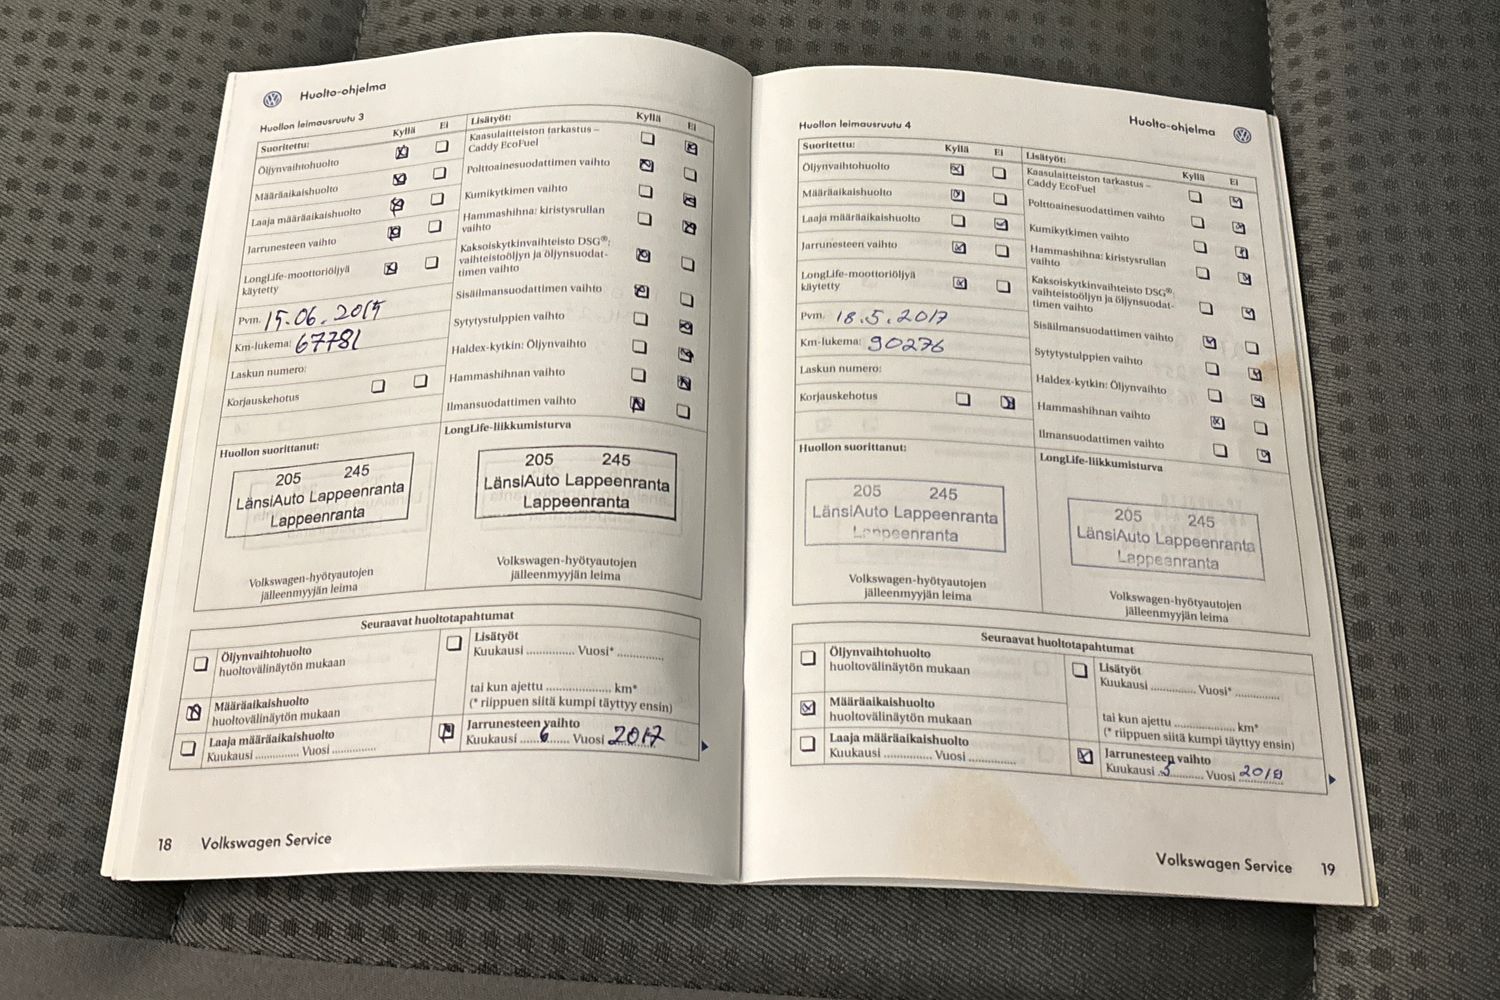 Huolto-ohjelma
Huollon leimausruutu 3
Suoritettu:
Kyllä
Ei
Öljynvaihtohuolto
Määräaikaishuolto
Laaja määräaikaishuolto
Jarrunesteen vaihto
LongLife-moottoriöljyä
käytetty
Pvm. 15.06.2015
Km-lukema: 67781
Laskun numero:
Korjauskehotus
Lisätyöt:
Kyllä
Ei
Kaasulaitteiston tarkastus –
Caddy EcoFuel
Polttoainesuodattimen vaihto
Kumikytkimen vaihto
Hammashihna: kiristysrullan
vaihto
Kaksoiskytkinvaihteisto DSG®:
vaihteistoöljyn ja öljynsuodat-
timen vaihto
Sisäilmansuodattimen vaihto
Sytytystulppien vaihto
Haldex-kytkin: Öljynvaihto
Hammashihnan vaihto
Ilmansuodattimen vaihto
Huollon suorittanut:
205 245
LänsiAuto Lappeenranta
Lappeenranta
Volkswagen-hyötyautojen
jälleenmyyjän leima
LongLife-liikkumisturva
205 245
LänsiAuto Lappeenranta
Lappeenranta
Volkswagen-hyötyautojen
jälleenmyyjän leima
Seuraavat huoltotapahtumat
Öljynvaihtohuolto
huoltovälinäytön mukaan
Määräaikaishuolto
huoltovälinäytön mukaan
Laaja määräaikaishuolto
Kuukausi ............... Vuosi ...............
Lisätyöt
Kuukausi ............... Vuosi* ...............
tai kun ajettu .................... km*
(* riippuen siitä kumpi täyttyy ensin)
Jarrunesteen vaihto
Kuukausi 6 Vuosi 2017
18 Volkswagen Service
Huolto-ohjelma
Huollon leimausruutu 4
Suoritettu:
Kyllä
Ei
Öljynvaihtohuolto
Määräaikaishuolto
Laaja määräaikaishuolto
Jarrunesteen vaihto
LongLife-moottoriöljyä
käytetty
Pvm. 18.5.2017
Km-lukema: 90276
Laskun numero:
Korjauskehotus
Lisätyöt:
Kyllä
Ei
Kaasulaitteiston tarkastus –
Caddy EcoFuel
Polttoainesuodattimen vaihto
Kumikytkimen vaihto
Hammashihna: kiristysrullan
vaihto
Kaksoiskytkinvaihteisto DSG®:
vaihteistoöljyn ja öljynsuodat-
timen vaihto
Sisäilmansuodattimen vaihto
Sytytystulppien vaihto
Haldex-kytkin: Öljynvaihto
Hammashihnan vaihto
Ilmansuodattimen vaihto
Huollon suorittanut:
205 245
LänsiAuto Lappeenranta
Lappeenranta
Volkswagen-hyötyautojen
jälleenmyyjän leima
LongLife-liikkumisturva
205 245
LänsiAuto Lappeenranta
Lappeenranta
Volkswagen-hyötyautojen
jälleenmyyjän leima
Seuraavat huoltotapahtumat
Öljynvaihtohuolto
huoltovälinäytön mukaan
Määräaikaishuolto
huoltovälinäytön mukaan
Laaja määräaikaishuolto
Kuukausi ............... Vuosi ...............
Lisätyöt
Kuukausi ............... Vuosi* ...............
tai kun ajettu .................... km*
(* riippuen siitä kumpi täyttyy ensin)
Jarrunesteen vaihto
Kuukausi 5 Vuosi
Volkswagen Service 19